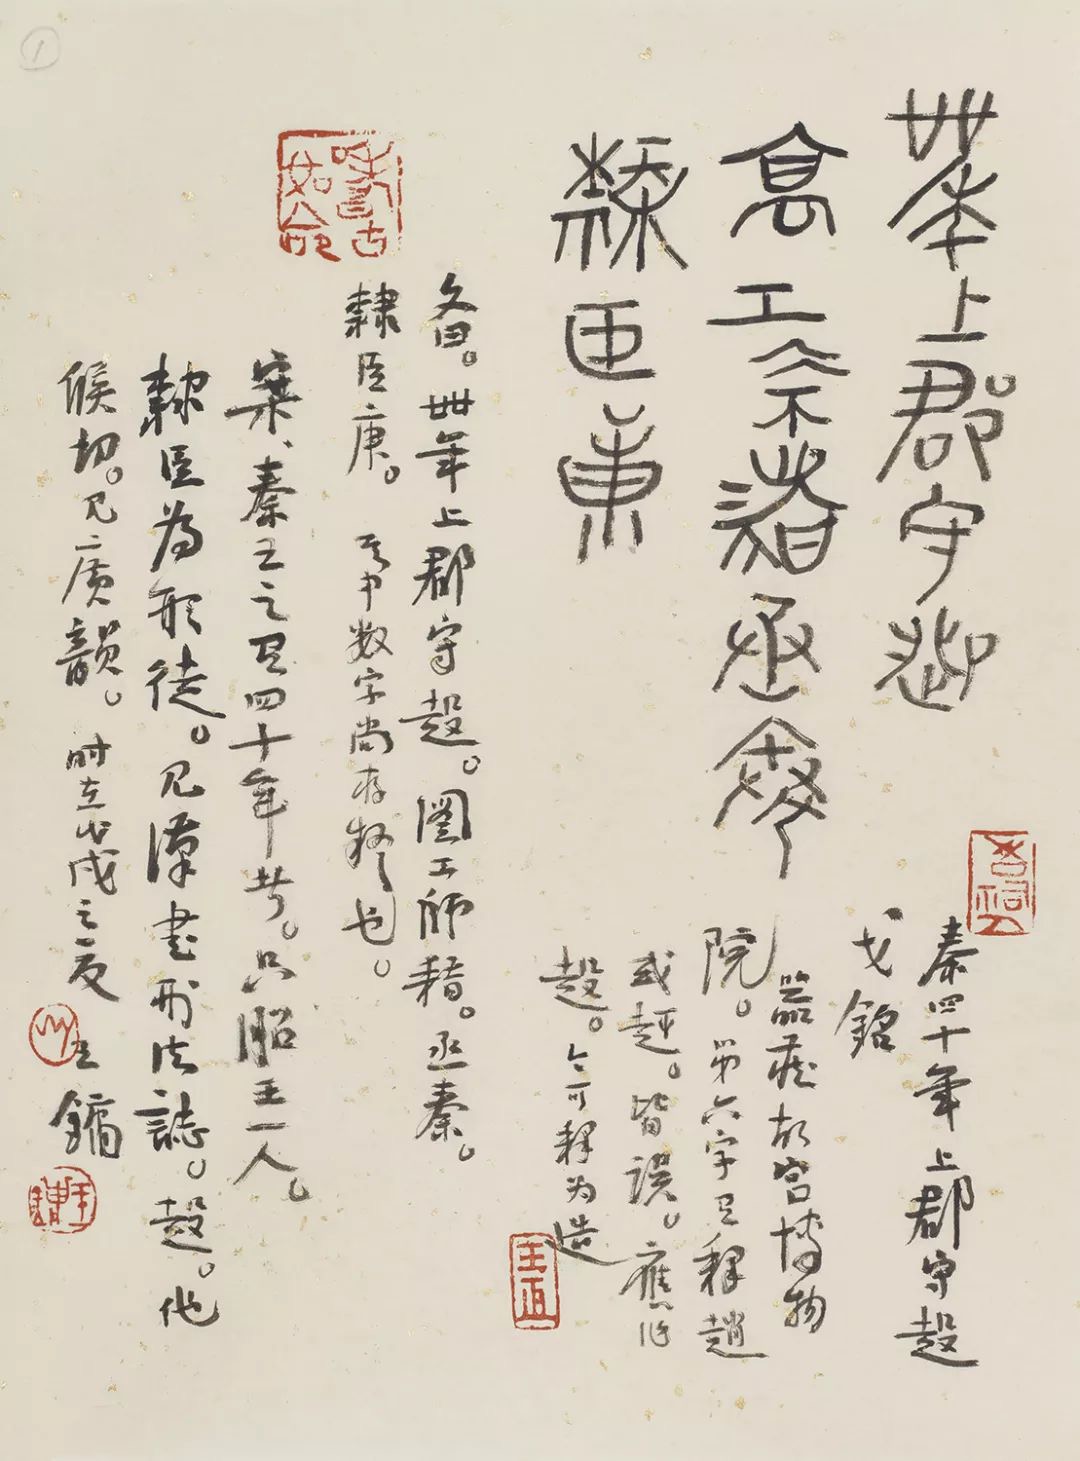 卌年上郡守
高工帀耤丞秦
隸臣庚
秦四十年上郡守
戈銘
器藏故宫博物
院。第六字旦释趙
或。皆误。應作
。亦可释为造
文曰。卌年上郡守。圖工师耤。丞秦。
隸臣庚。其中数字尚存疑也。
案、秦王之足四十年者。只昭王一人。
隸臣為刑徒。见漢書刑法誌。他
候切。见廣韻。时在戊戌之夏 王鏞
嗜古如命